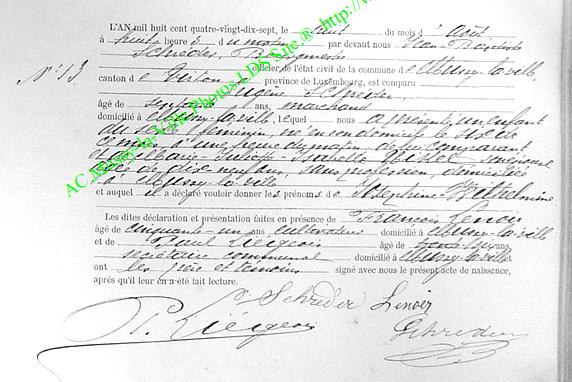 L'AN mil huit cent quatre-vingt-dix-sept, le huit du mois d'Août
à huit heure s du matin par devant nous Jean Baptiste
Schréder, Bourgmestre
N° 13
officier, de l'état civil de la commune de Mussy-la-ville
canton de Virton province de Luxembourg, est comparu
Eugène Schréder,
âgé de ans, marchand
domicilié à Mussy-la-ville, lequel nous a présenté un enfant
du sexe féminin, né en son domicile le six de
ce mois à une heure du matin, de lui comparant
et de Marie son épouse
âgée de dix neuf ans, sans profession, domiciliée
à Mussy-la-ville
et auquel il a déclaré vouloir donner le s prénom s de Joséphine Wilhelmine
Les dites déclaration et présentation faites en présence de François Lenoir
âgé de cinquante un ans cultivateur domicilié à Mussy-la-ville
et de Paul Liégeois âgé de ans
secrétaire communal domicilié à Mussy-la-ville
ont les père et témoins signé avec nous le présent acte de naissance,
après qu'il leur en a été fait lecture.
Schréder Lenoir
P. Liégeois Schréder
AC Mussy-la-Ville Photos LDS Site ® http://w